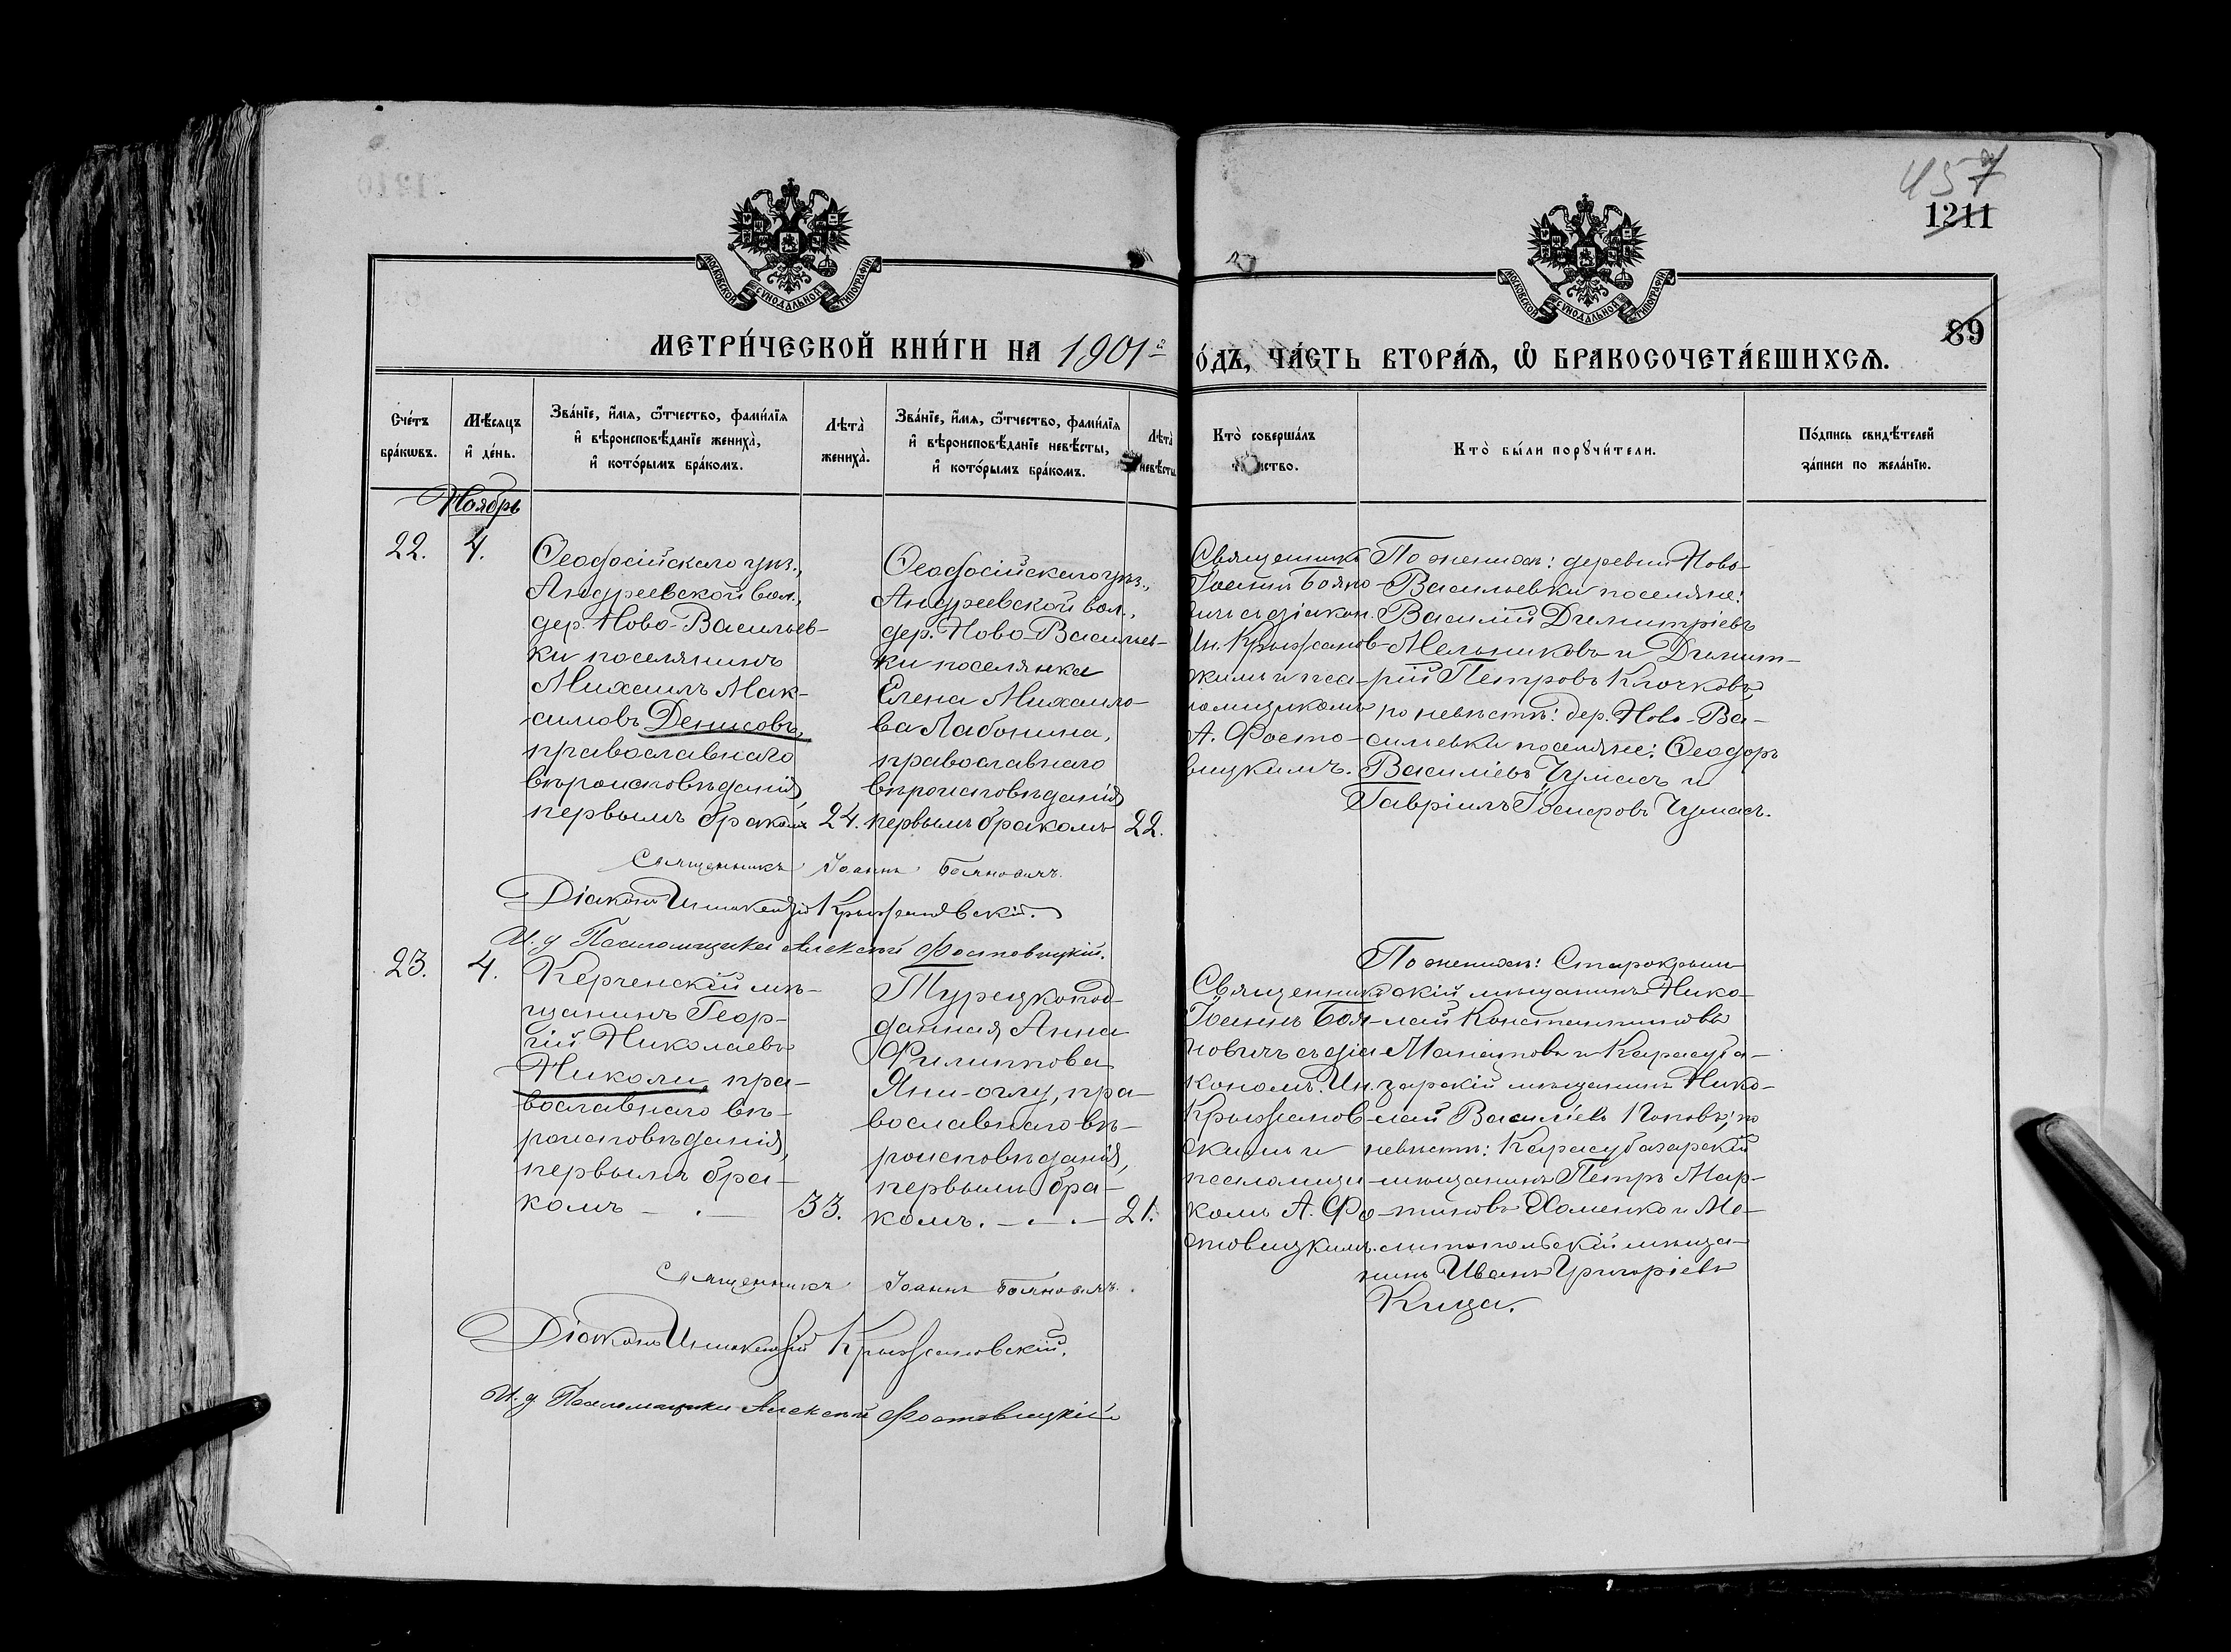 457
1211
МОСКОВСКОЙ СѴНОДАЛЬНОЙ ТИПОГРАФІИ
МОСКОВСКОЙ СѴНОДАЛЬНОЙ ТИПОГРАФІИ
89
МЕТРИ́ЧЕСКОЙ КНИ́ГИ НА 1901й
О́ДЪ, ЧА́СТЬ ВТОРА́Ѧ, Ѽ БРАКОСОЧЕТА́ВШИХСѦ.
Сче́тъ бра́кѡвъ.
Мѣ́сяцъ и҆ де́нь.
Зва́нїе, и҆́мѧ, ѻ҆́тчество, фами́лїѧ
и҆ вѣроисповѣ́данїе жениха̀,
и҆ кото́рымъ бра́комъ.
Лѣта̀ жениха̀.
Зва́нїе, и҆́мѧ, ѻ҆́тчество, фами́лїѧ
и҆ вѣроисповѣ́данїе невѣ́сты,
и҆ кото́рымъ бра́комъ.
Лѣта̀ невѣ́сты
Кто̀ соверша́лъ
Кто̀ бы́ли порꙋчи́тели.
По́дпись свидѣ́телей
за́писи по жела́нїю.
Ноябрь
22.
4.
Ѳеодосійскаго уѣз.,
Андреевской вол.,
дер. Ново-Васильев-
ки поселянинъ
Михаилъ Мак-
симовъ Денисовъ,
православнаго
вѣроисповѣданія,
первымъ бракомъ
24.
Ѳеодосійскаго уѣз.,
Андреевской вол.,
дер. Ново-Васильев-
ки поселянка
Елена Михаило-
ва Лабонина,
православнаго
вѣроисповѣданія
первымъ бракомъ
22.
Священникъ
Іоаннъ Бояно-
вичъ съ діакон.
Ин. Крыжанов-
скимъ и пса-
ломщикомъ
А. Фосто-
вицкимъ.
По женихѣ: деревни Ново-
Васильевки поселяне:
Василій Димитріевъ
Мельниковъ и Димит-
рій Петровъ Клочковъ,
по невѣстѣ: дер. Ново-Ва-
сильевки поселяне: Ѳеодоръ
Василіевъ Чумасъ и
Гавріилъ Іосифовъ Чумасъ.
Священникъ Іоаннъ Бояновичъ.
Діаконъ Иннокентій Крыжановскій.
И. д. Псаломщика Алексѣй Фостовицкій.
23.
4.
Керченскій мѣ-
щанинъ Геор-
гій Николаевъ
Николи, пра-
вославнаго вѣ-
роисповѣданія,
первымъ бра-
комъ
33.
Турецкопод-
данная Анна
Филиппова
Яни-оглу, пра-
вославнаго вѣ-
роисповѣданія,
первымъ бра-
комъ.
21.
Священникъ
Іоаннъ Боя-
новичъ съ діа-
кономъ Ин.
Крыжанов-
скимъ и
псаломщи-
комъ А. Фо-
стовицкимъ.
По женихѣ: Старокрым-
скій мѣщанинъ Нико-
лай Константиновъ
и Карасуба-
зарскій мѣщанинъ Нико-
лай Василіевъ Поповъ; по
невѣстѣ: Карасубазарскій
мѣщанинъ Петръ Мар-
тиновъ Хоменко и Ме-
литопольскій мѣща-
нинъ Иванъ Григоріевъ
Кица.
Священникъ Іоаннъ Бояновичъ.
Діаконъ Иннокентій Крыжановскій.
И. д. Псаломщика Алексѣй Фостовицкій